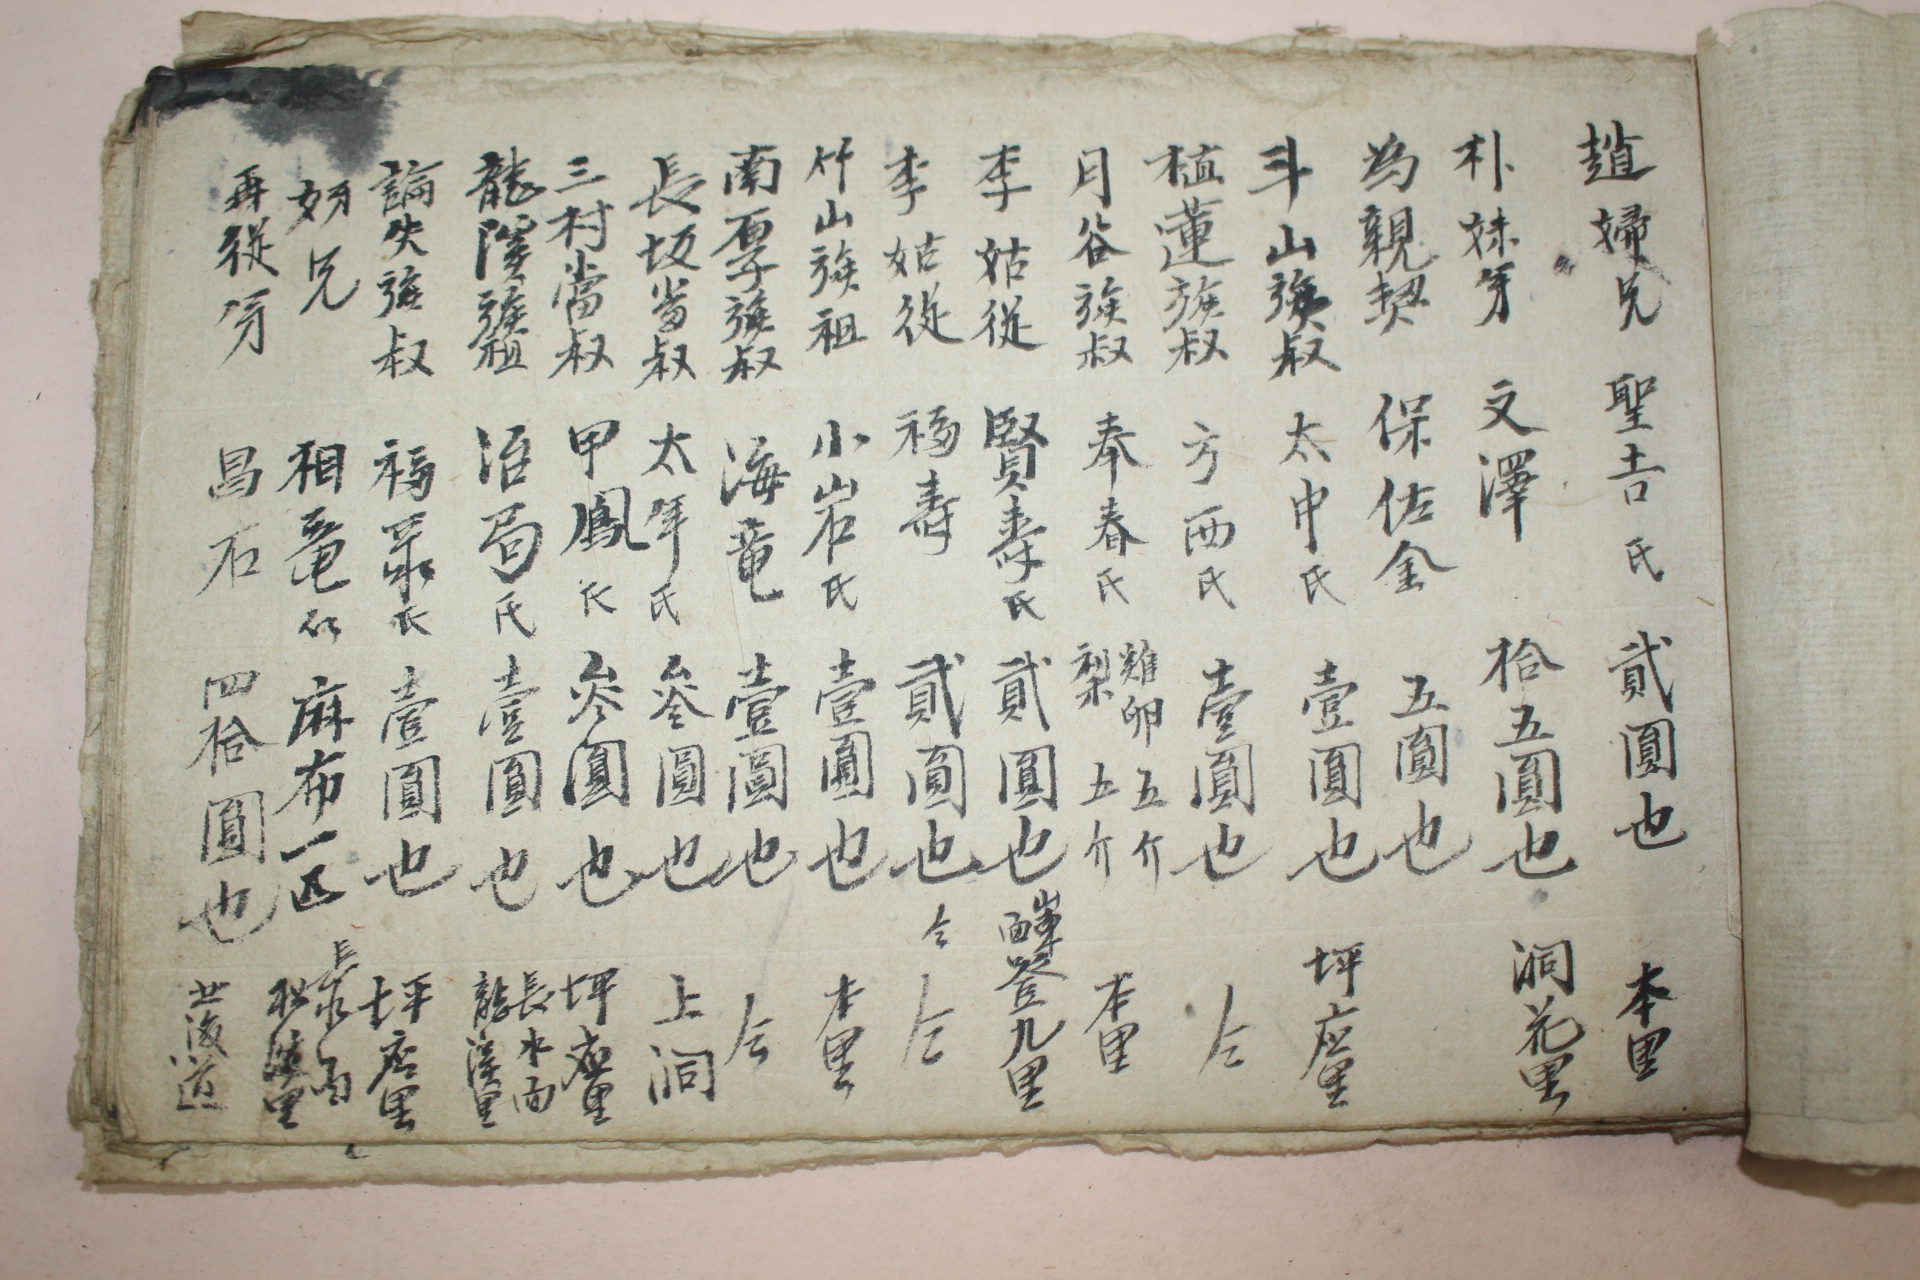 趙婦兄 聖吉氏 貳圓也 本里
朴妹弟 文澤 拾五圓也 洞花里
為親契 保佐金 五圓也
斗山族叔 太中氏 壹圓也 坪应里
植蓮族叔 方西氏 壹圓也 仝
月谷族叔 奉春氏 雞卵五介 梨五介 本里
李姑從 賢壽氏 貳圓也 九里
李姑從 福壽 貳圓也 仝
竹山族祖 小岩氏 壹圓也 本里
南厚族叔 海竜 壹圓也 仝
長坂當叔 太年氏 叄圓也 上洞
三村當叔 甲鳳氏 叄圓也 坪应里
龍溪族祖 洛局氏 壹圓也 長水面 龍溪里
論失族叔 福氏 壹圓也 坪店里
妎兄 相竜 麻布一匹 長水面
再從弟 昌石 四拾圓也